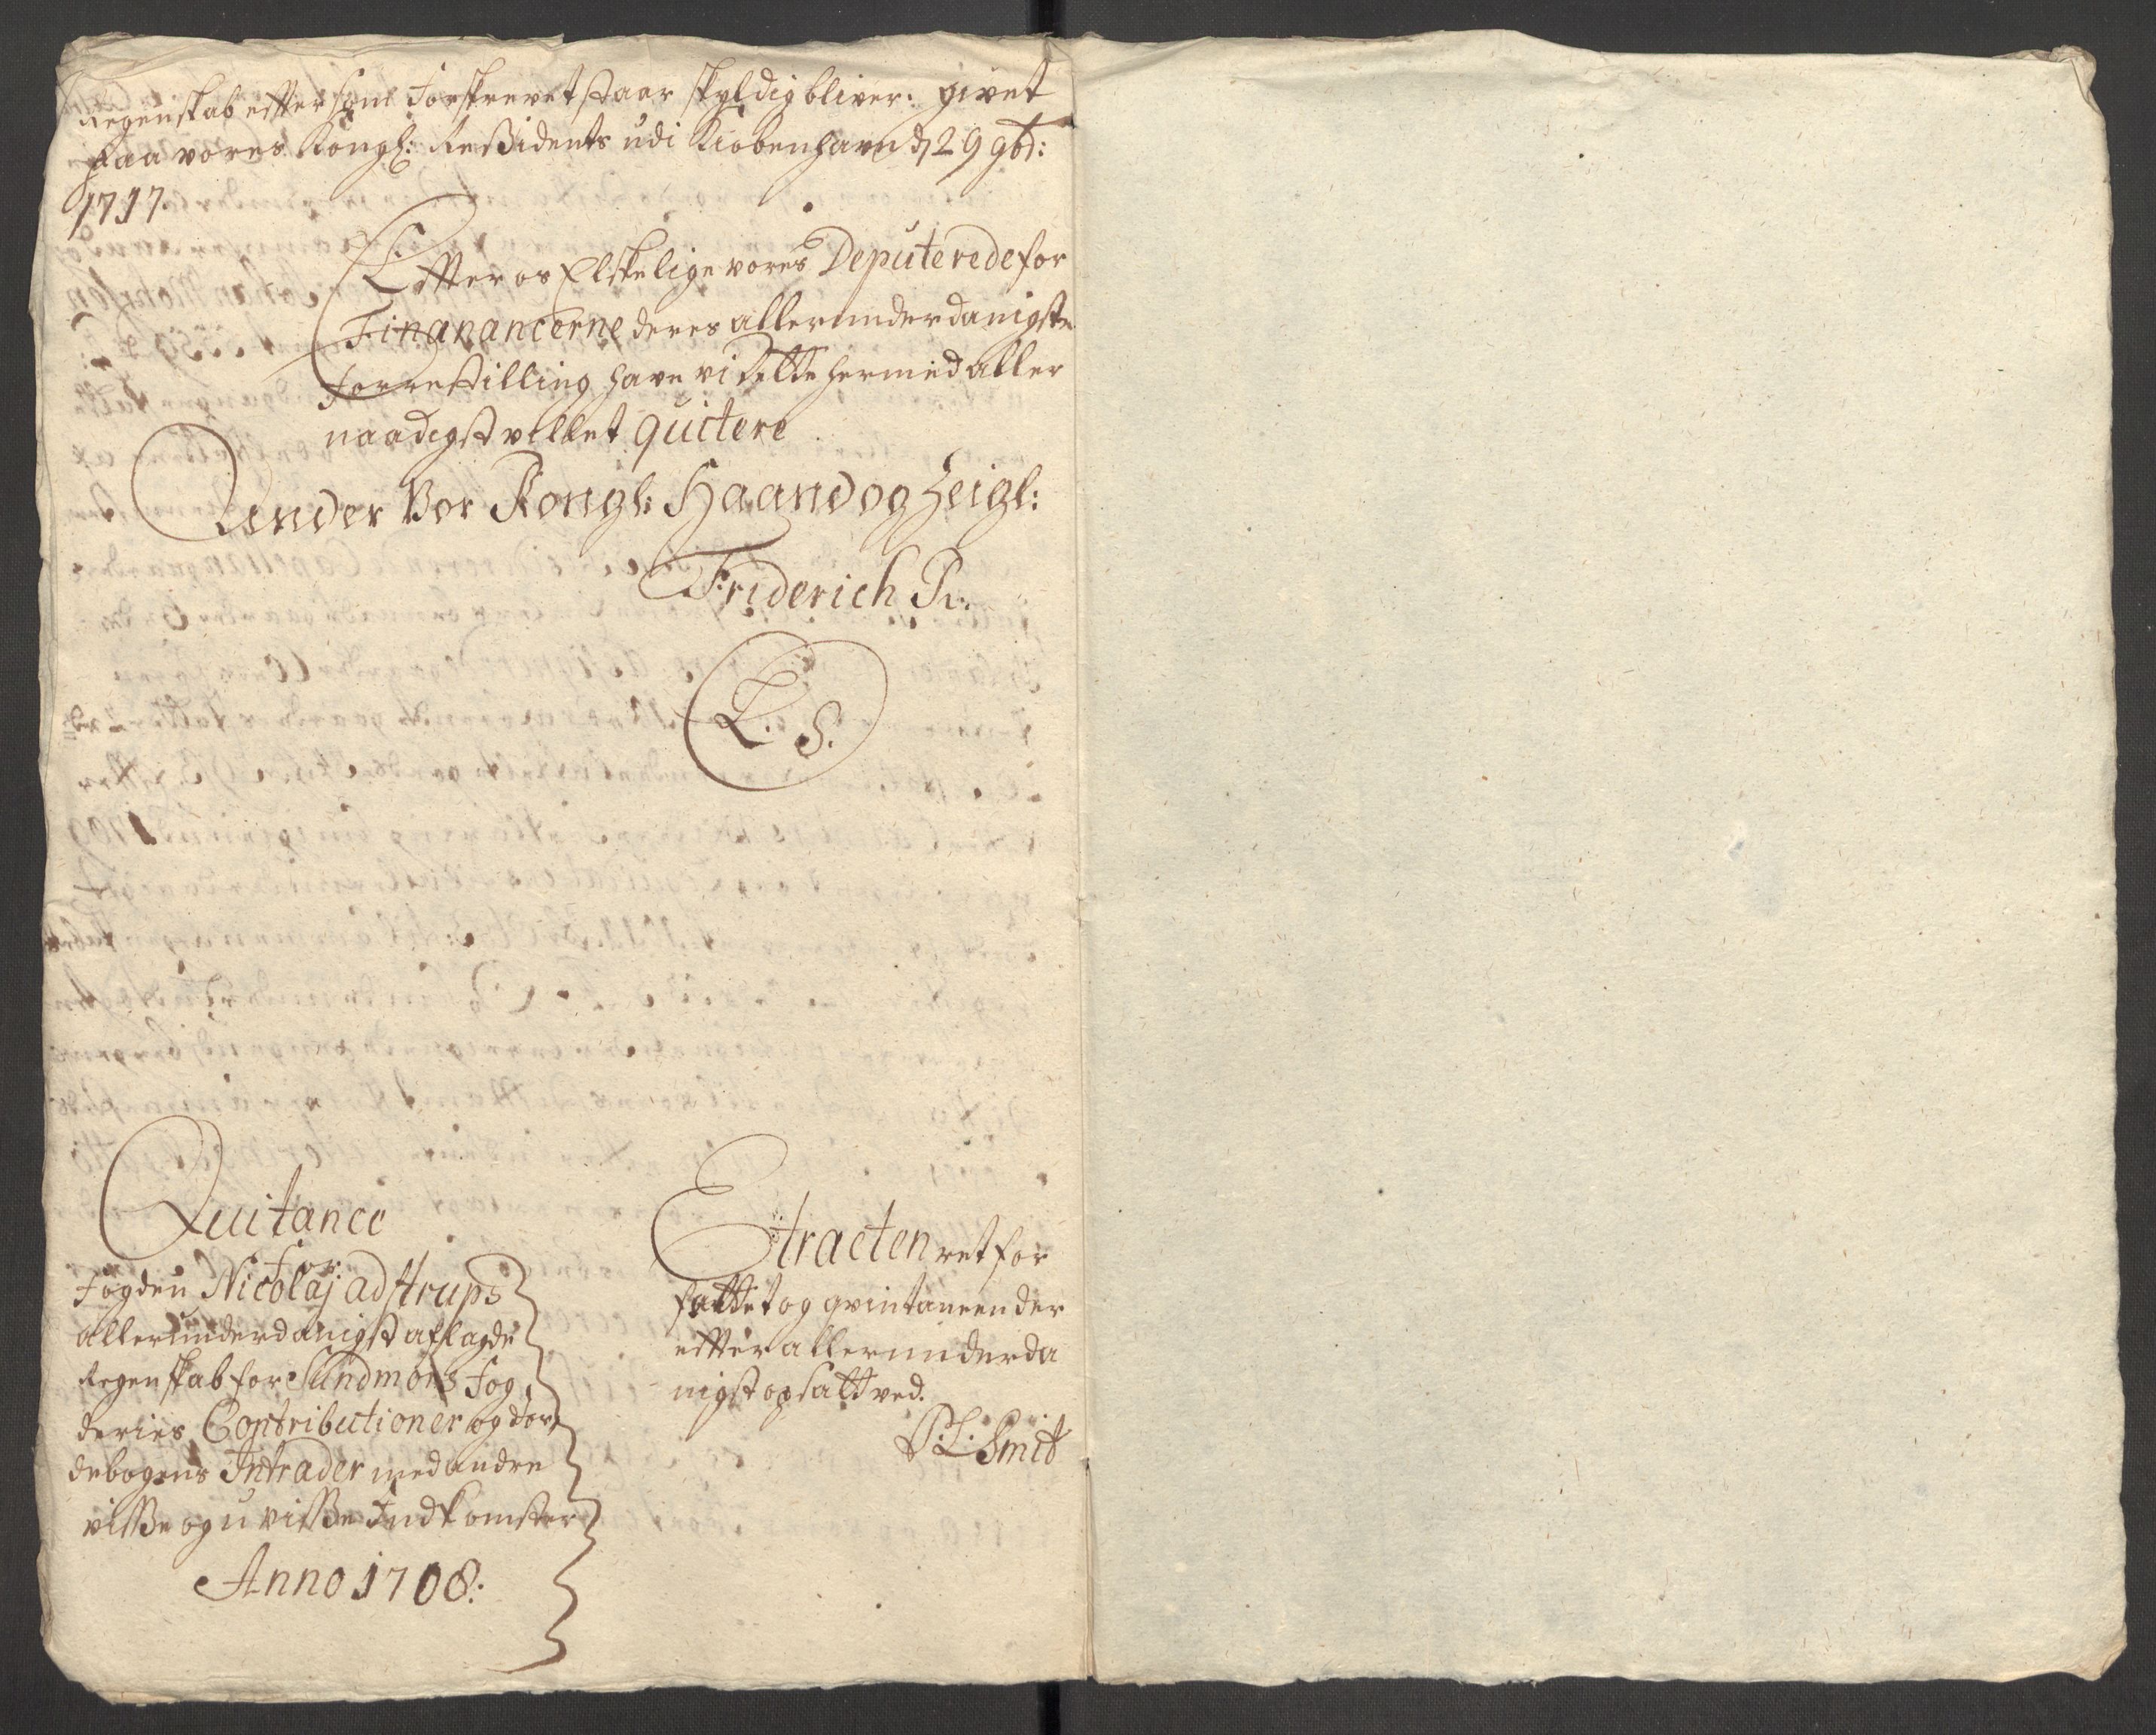 Regenskab effter som Forskrevet staar skyldig bliver: givet
paa vores Kongl: Reßidents udi Kiøbenhavn d 29 9br:
1717.
Effter os Elskelige vores Deputerede for
Finanancerne deres allerunderdanigste
Forrestilling have vi dette hermed aller
naadigst villet quitere.
Under Vor Kongl: Haand og Zeigl:
Friderich R:
L. S.
Quitance
For
Fogden Nicolaj adstrups
allerunderdanigst aflagde
Regenskab for Sundmørs Fog
deries Contributioner og Jor
debogens Intrader med andre
visße og u visße Indkomster
Anno 1708:
Etracten ret for
fattet og qvintaneen der
effter allerunderda
nigst opsatt ved.
P: L: Smit